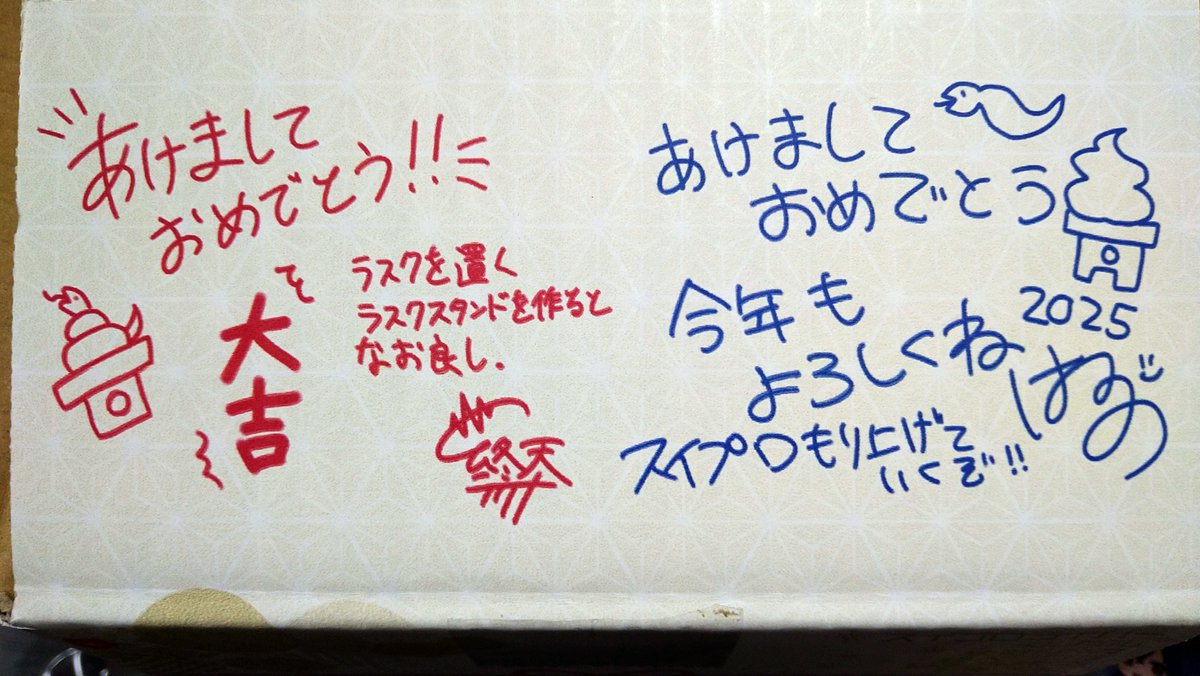 あけまして
おめでとう!!
大吉
ラスクを置く
ラスクスタンドを作ると
なお良し.
終天
あけまして
おめでとう
2025
今年も
よろしくね
はるの
スイプロもり上げて
いくぞ!!